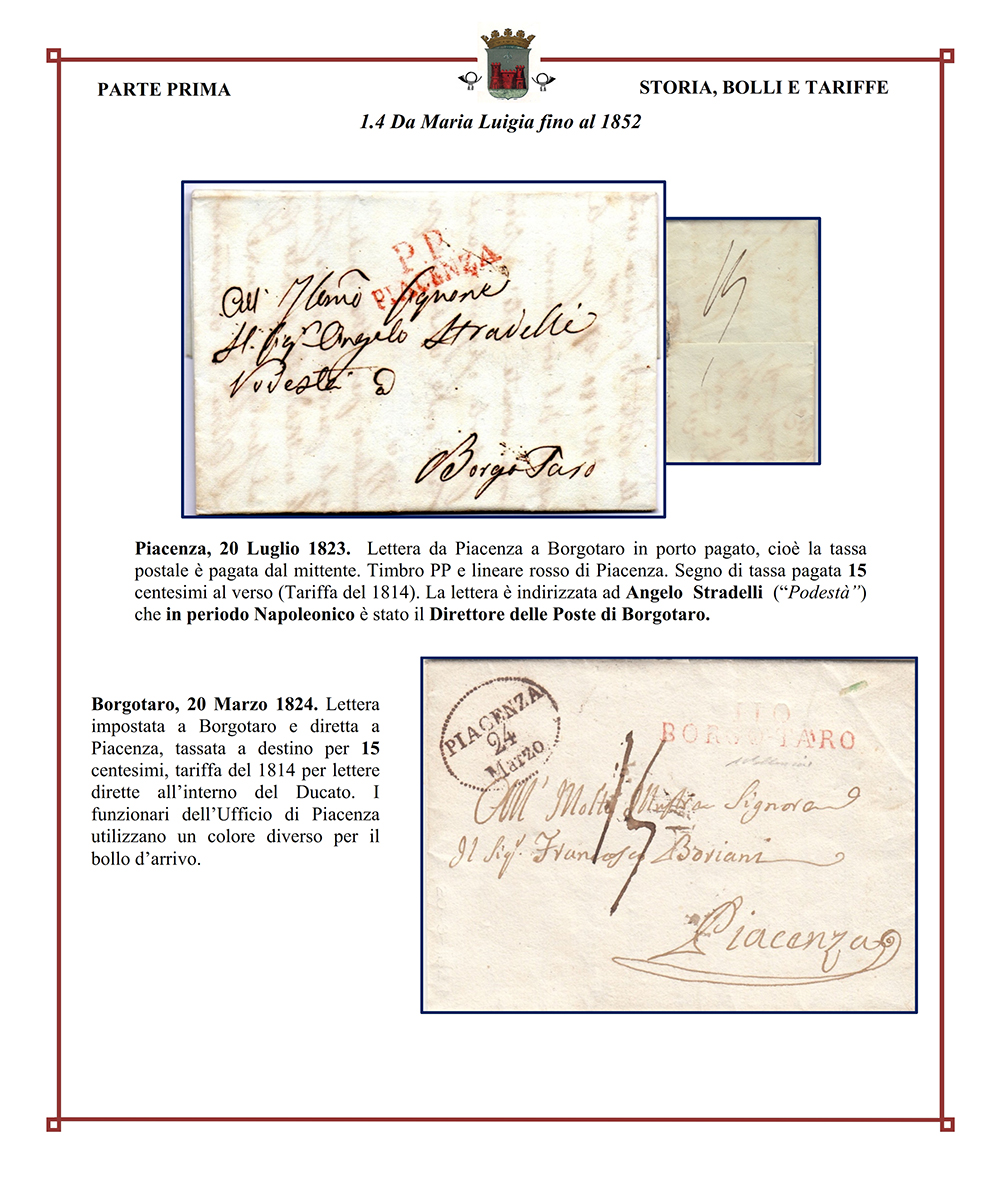 PARTE PRIMA
STORIA, BOLLI E TARIFFE
1.4 Da Maria Luigia fino al 1852
P.P.
PIACENZA
All' Illmo Signore
Il Sigr Angelo Stradelli
Podestà a
Borgo Taro
15
Piacenza, 20 Luglio 1823. Lettera da Piacenza a Borgotaro in porto pagato, cioè la tassa
postale è pagata dal mittente. Timbro PP e lineare rosso di Piacenza. Segno di tassa pagata 15
centesimi al verso (Tariffa del 1814). La lettera è indirizzata ad Angelo Stradelli (“Podestà”)
che in periodo Napoleonico è stato il Direttore delle Poste di Borgotaro.
Borgotaro, 20 Marzo 1824. Lettera
impostata a Borgotaro e diretta a
Piacenza, tassata a destino per 15
centesimi, tariffa del 1814 per lettere
dirette all’interno del Ducato. I
funzionari dell’Ufficio di Piacenza
utilizzano un colore diverso per il
bollo d’arrivo.
PIACENZA
24
Marzo
110
BORGO-TARO
15
All' Molto Signore
Il Sigr. Francesco Boriani
Piacenza